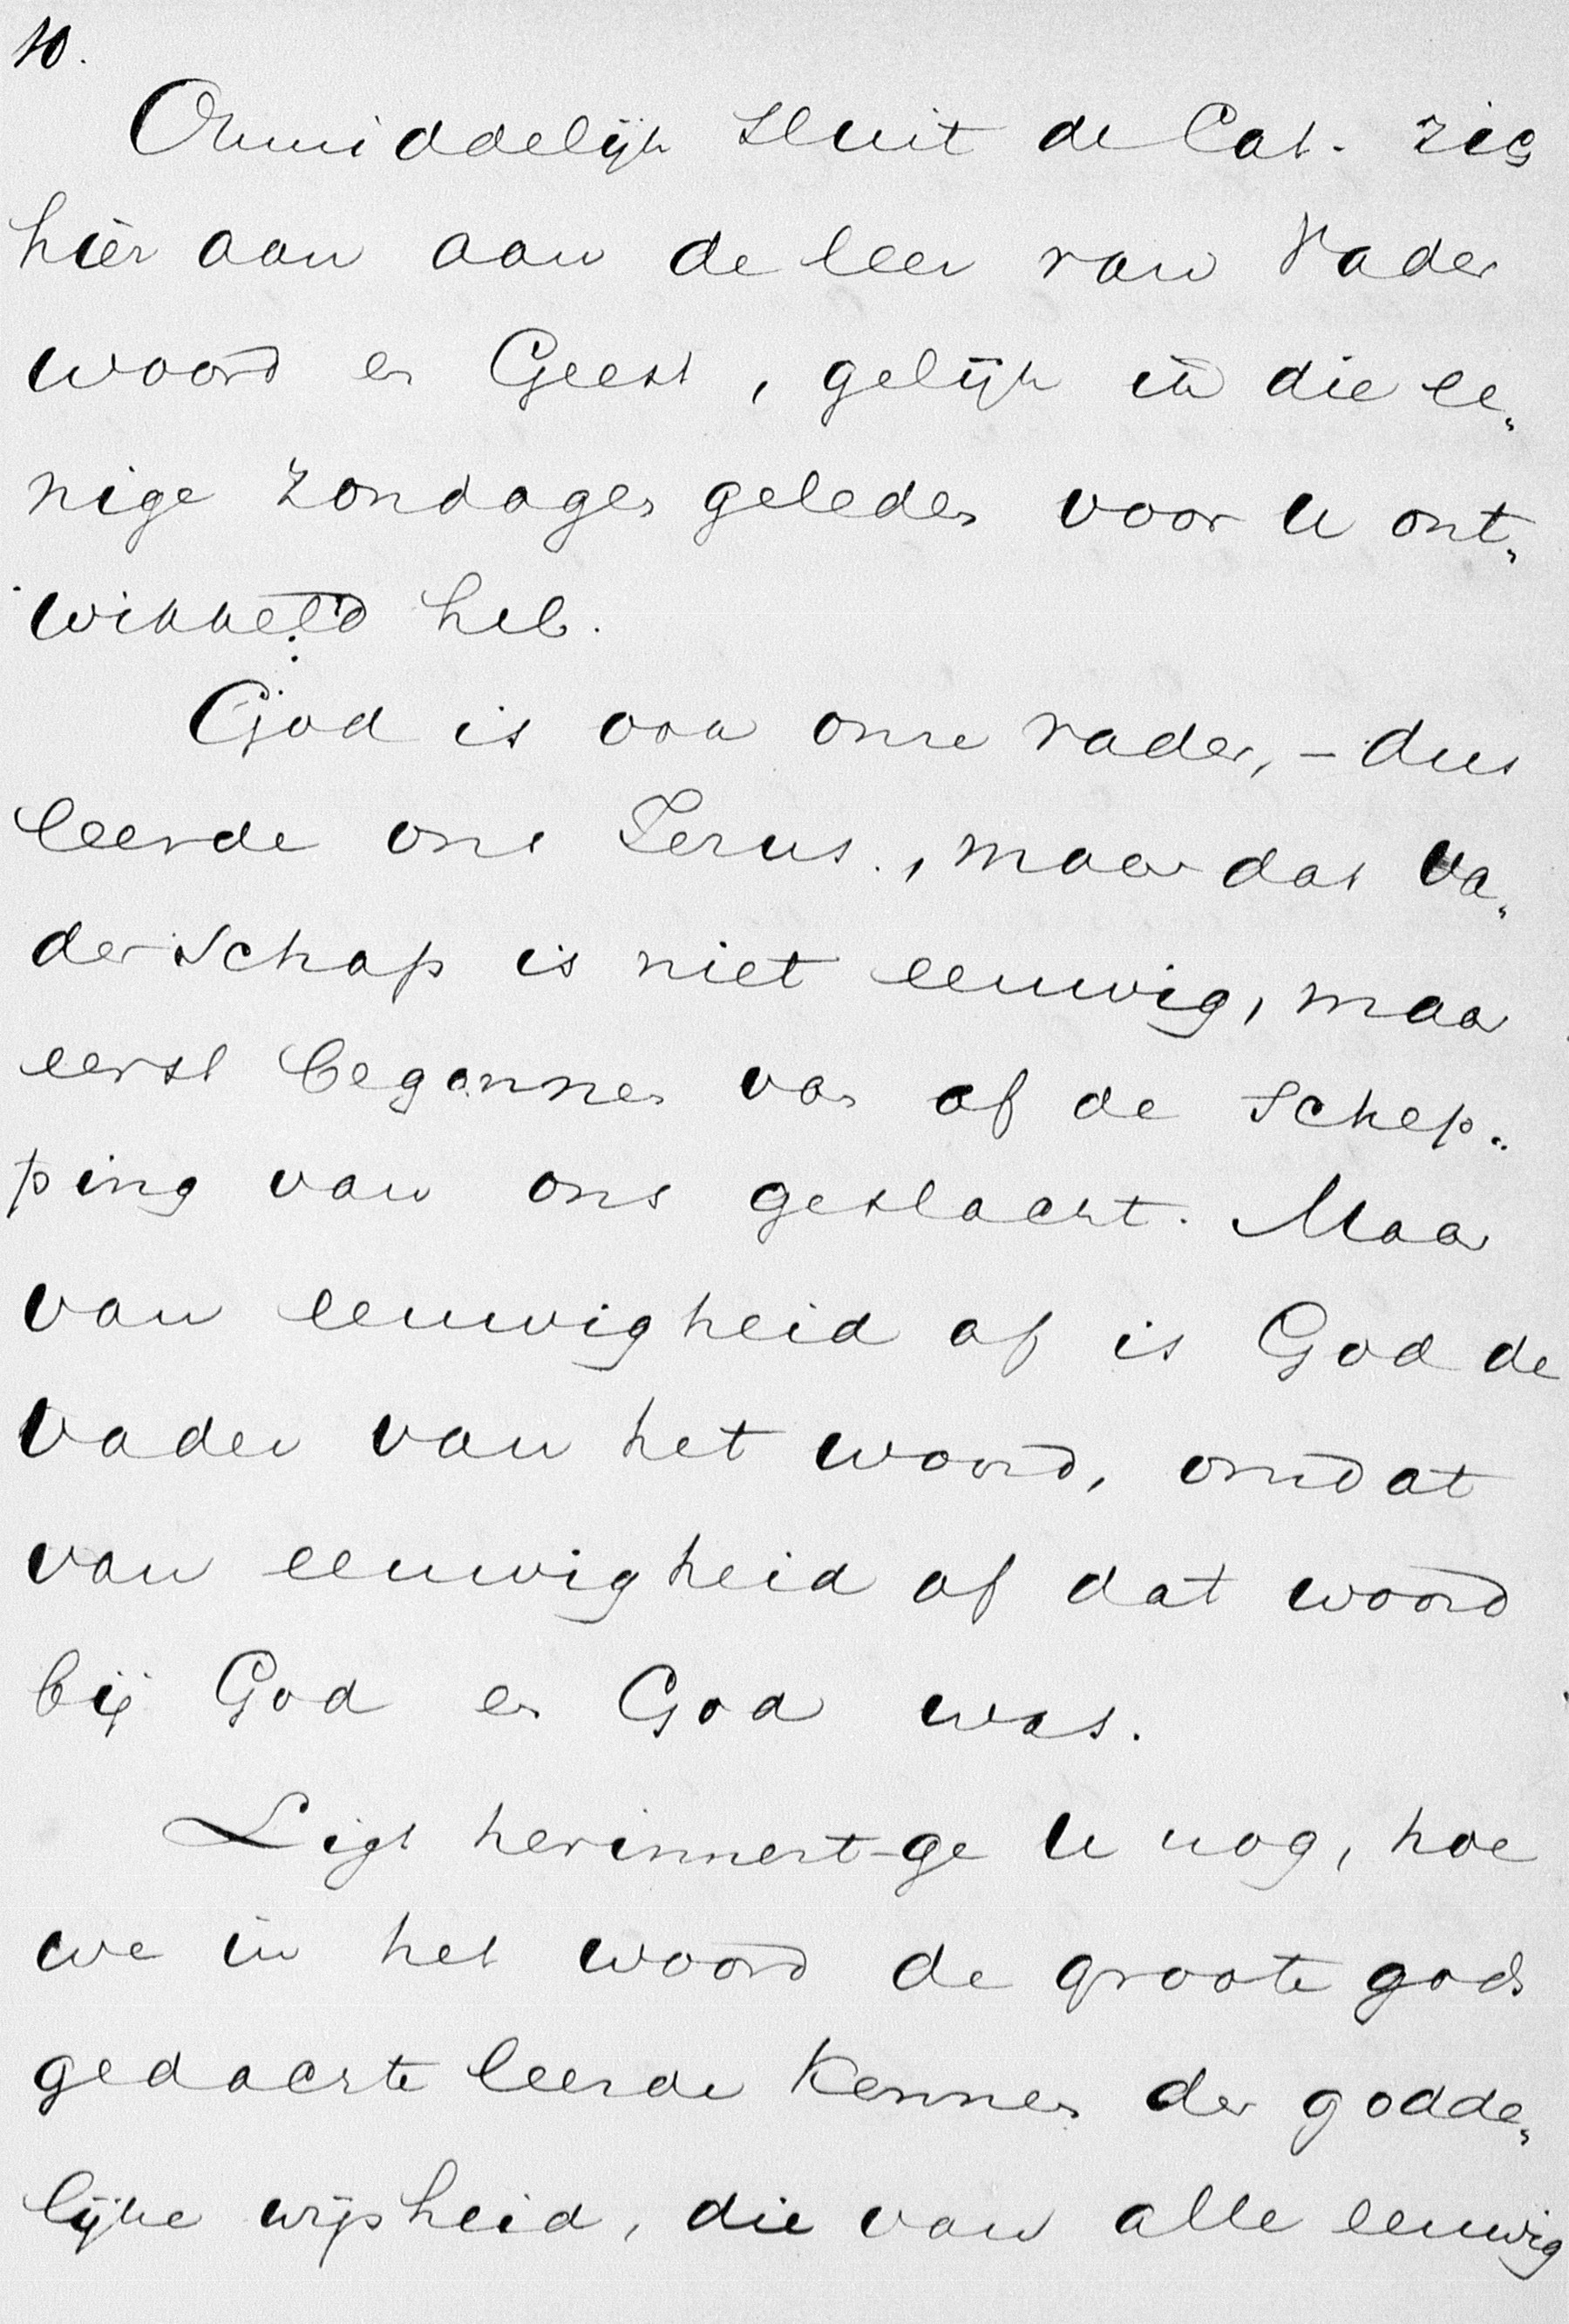 10.
Onmiddelijk sluit de Cat. zig
hier aan aan de leer van Vader
woord en Geest, gelijk ik die ee„
nige Zondagen geleden voor U ont„
wikkeld heb.
God is ook onze vader, – dus
leerde ons Jezus., maar dat Va„
derschap is niet eeuwig, maar
eerst begonnen van af de schep„
ping van ons geslacht. Maar
van eeuwigheid af is God de
Vader van het woord, omdat
van eeuwigheid af dat woord
bij God en God was.
Ligt herinnert-ge U nog, hoe
we in het woord de groote gods
gedachte leerde kennen der godde„
lijke wijsheid, die van alle eeuwig